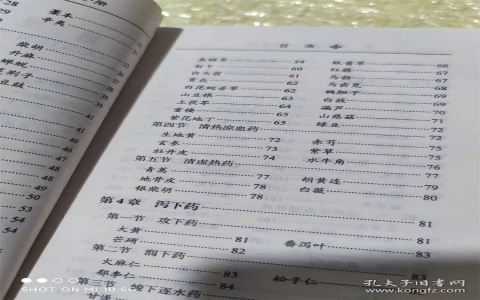 藁本
辛夷
柴胡
升麻
蝉蜕
蔓荆子
豆豉
鱼腥草 59
射干 60
白头翁 61
白花蛇舌草 62
山豆根 62
土茯苓 63
紫花地丁 65
败酱草 66
红藤 67
马勃 67
马齿苋 68
鸦胆子 69
白蔹
漏芦
山慈菇 71
绿豆 72
第四节 清热凉血药 72
生地黄 72
玄参 73
牡丹皮 74
赤芍 75
紫草 75
水牛角 76
第五节 清虚热药 77
青蒿 77
地骨皮 78
银柴胡 78
胡黄连 79
白薇 80
第4章 泻下药 81
第一节 攻下药 81
大黄 81
芒硝 82
番泻叶 82
第二节 润下药 83
火麻仁 83
郁李仁 84
松子仁 83
峻下逐水药
甘遂
SHOT ON MI 10 5G
孔夫子旧书网
www.kongfz.com